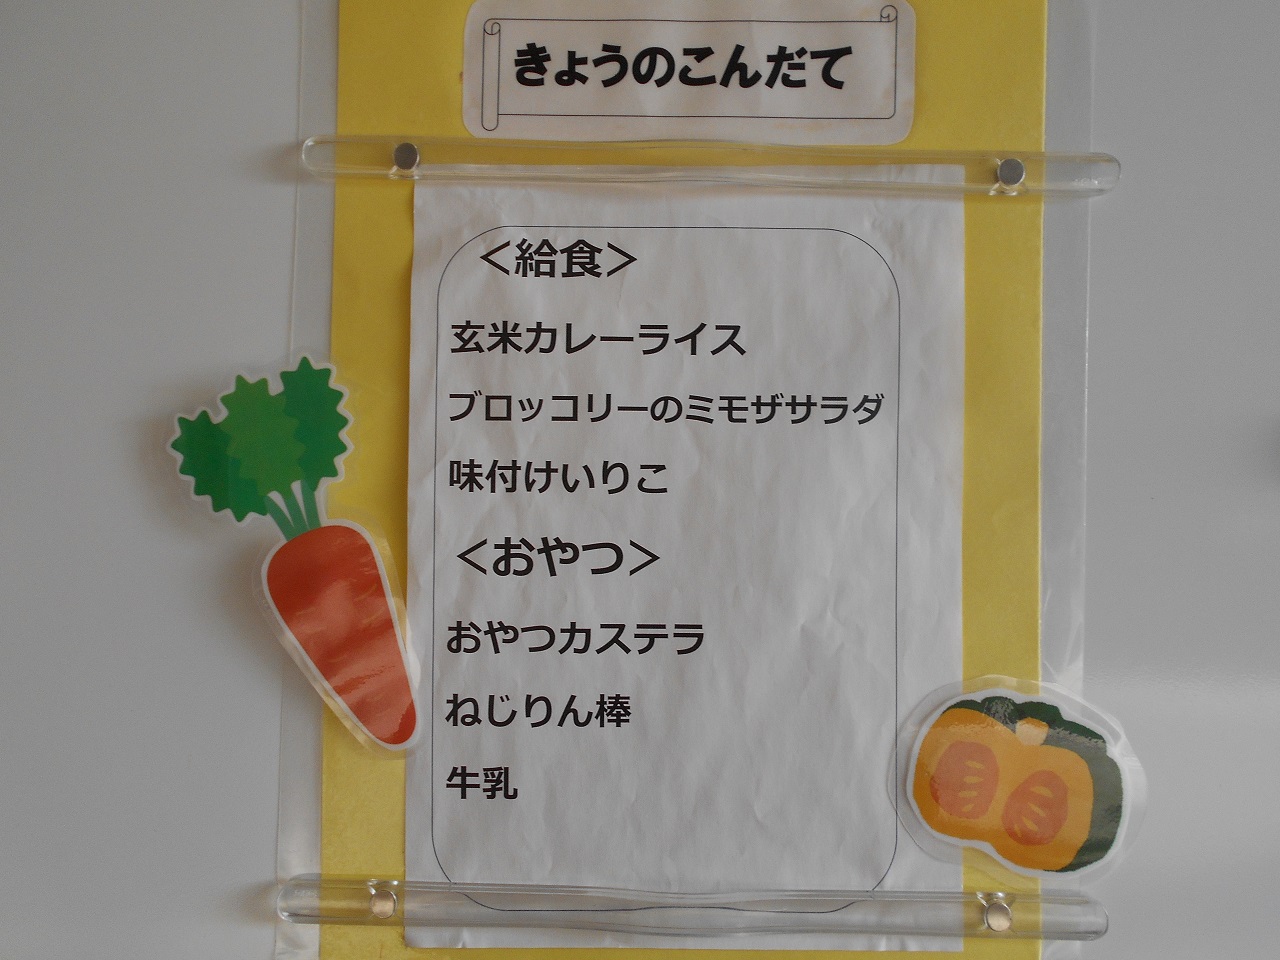 きょうのこんだて
＜給食＞
玄米カレーライス
ブロッコリーのミモザサラダ
味付けいりこ
＜おやつ＞
おやつカステラ
ねじりん棒
牛乳